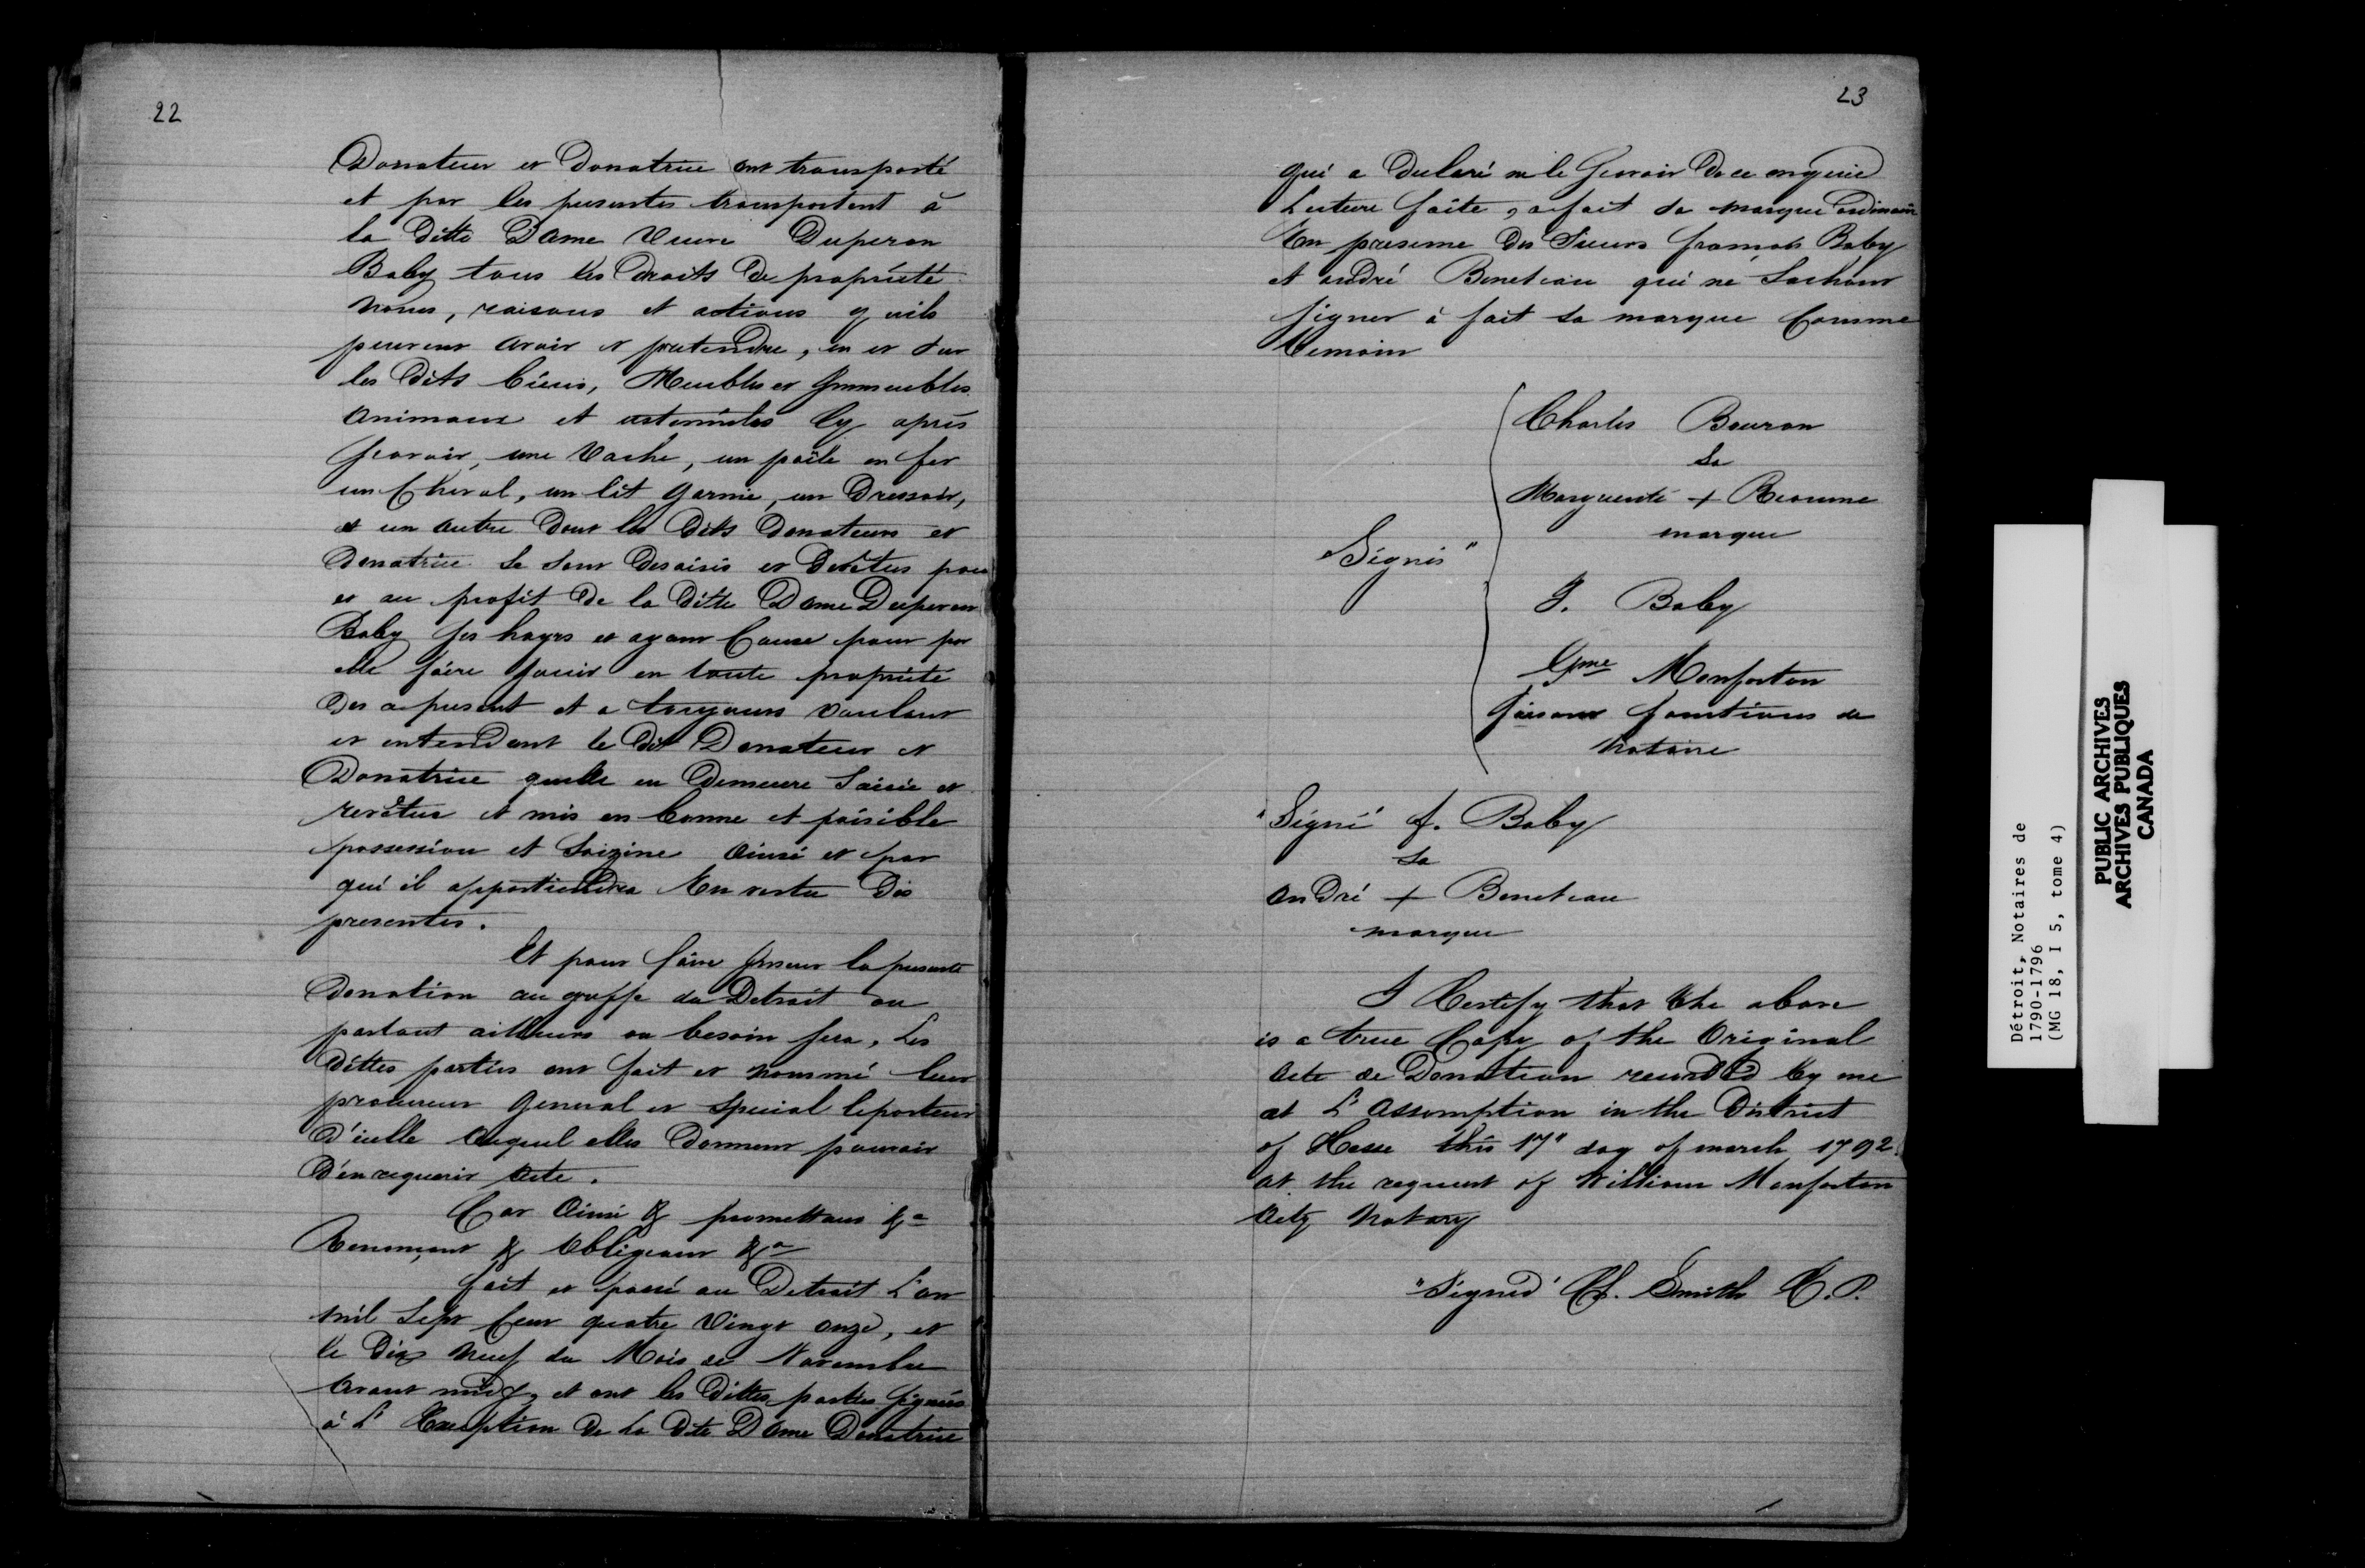 22
Donateur et Donatrice ont transporté
et par les presentes transportent à
la Ditte Dame Veuve Duperon
Baby tous les Droits de propriété
noms, raisons et actions quils
peuvent avoir et pretendre, en et sur
les Dits biens, Meubles et Immeubles
animaux et ustensiles Cy après
sçavoir, une Vache, un poële en fer
un Cheval, un lit garnie, un Dressoir,
et un autre Dont les Dits Donateurs et
Donatrice se sont Desaisis et Devêtus pour
et au profit De la Ditte Dame Duperon
Baby ses hoyrs et ayant Cause pour par
elle faire Jouir en toute propriété
Des a present et a toujours voulant
et entendant le Dit Donateur et
Donatrice quelle en Demeure Saisie et
revêtue et mis en bonne et paisible
possession et Saizine ainsi et par
qui il appartiendra En vertu Des
presentes.
Et pour faire Inserer la presente
Donation au greffe du Detroit ou
partout ailleurs ou besoin sera, Les
Dittes parties ont fait et nommé leur
procureur General et Special le porteur
D'icelle auquel elles Donnent pouvoir
D'en requerir acte.
Car Ainsi & promettant &a
Renonçant & Obligeant &a
fait et passé au Detroit L'an
mil Sept Cent quatre Vingt onze, et
le Dix neuf du Mois de Novembre
avant midy, et ont les Dittes parties signées
à L'Exception De la Dte Dame Donatrice
23
qui a Declaré ne le Sçavoir De ce enquise
Lecture faite, a fait sa marque ordinaire
En presence Des Sieurs françois Baby
et andré Beneteau qui ne Sachant
signer à fait sa marque Comme
Temoin
Charles Bouron
Sa
Marguerite + Reaume
marque
"Signés"
J. Baby
Gme Monforton
faisant fonctions de
Notaire
"Signé" f. Baby
Sa
André + Beneteau
marque
I Certify that the above
is a true Copy of the Original
Acte de Donation recorded by me
at L'Assomption in the District
of Hesse this 17" day of march 1792
at the request of William Monforton
Actg Notary
"Signed" Smith C. P.
Détroit, Notaires de
1790-1796
(MG 18, I 5, tome 4)
PUBLIC ARCHIVES
ARCHIVES PUBLIQUES
CANADA